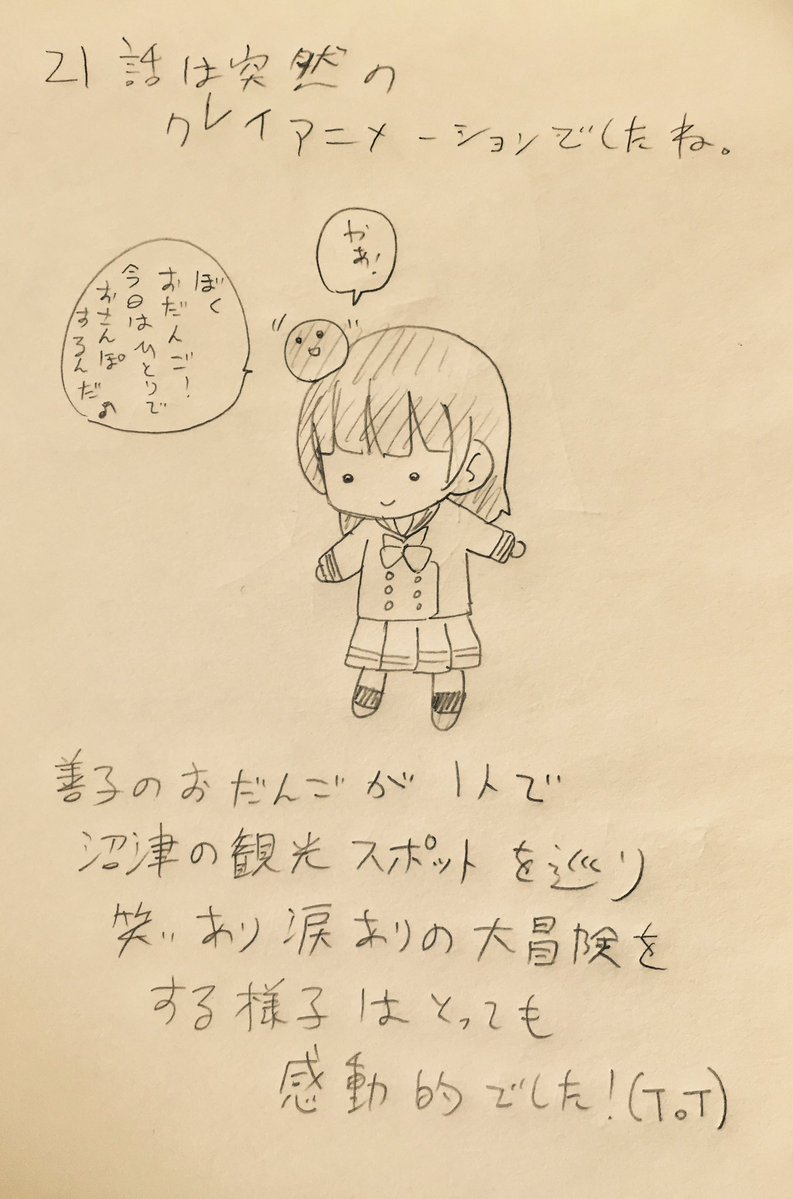 21話は突然の
クレイアニメーションでしたね。
かぁ!
ぼく
おだんご!
今日はひとりで
おさんぽ
するんだ♪
善子のおだんごが1人で
沼津の観光スポットを巡り
笑いあり涙ありの大冒険を
する様子はとっても
感動的でした!(ToT)